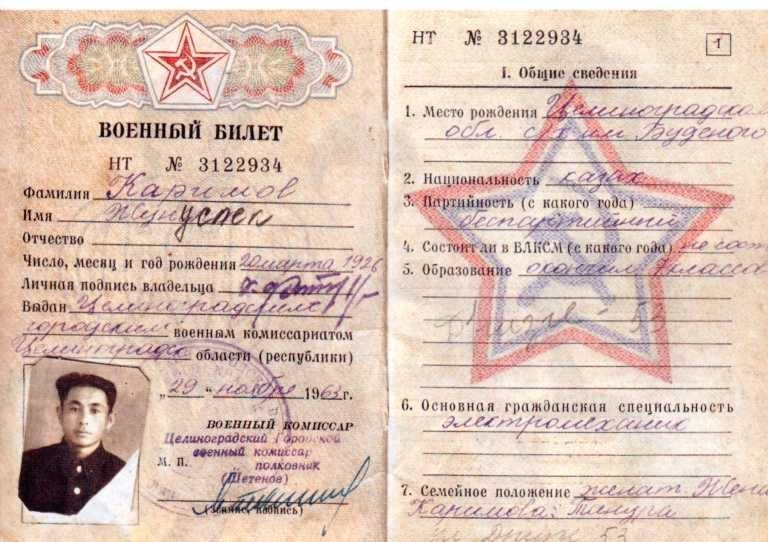 ВОЕННЫЙ БИЛЕТ
НТ № 3122934
Фамилия Каримов
Имя Жунуспек
Отчество
Число, месяц и год рождения 20 марта 1926
Личная подпись владельца
Выдан Целиноградским
городским военным комиссариатом
Целиноградск области (республики)
„29 “ ноября 1963 г.
ВОЕННЫЙ КОМИССАР
Целиноградский Городской
военный комиссар
М. П. полковник
(Шетенов)
(Звание, подпись)
НТ № 3122934
1
I. Общие сведения
1. Место рождения Целиноградская
обл. с-з им. Буденого
2. Национальность казах
3. Партийность (с какого года)
беспартийный
4. Состоит ли в ВЛКСМ (с какого года) не сост
5. Образование окончил 7 классов
53
6. Основная гражданская специальность
электромеханик
7. Семейное положение женат. Жена
Каримова:
53